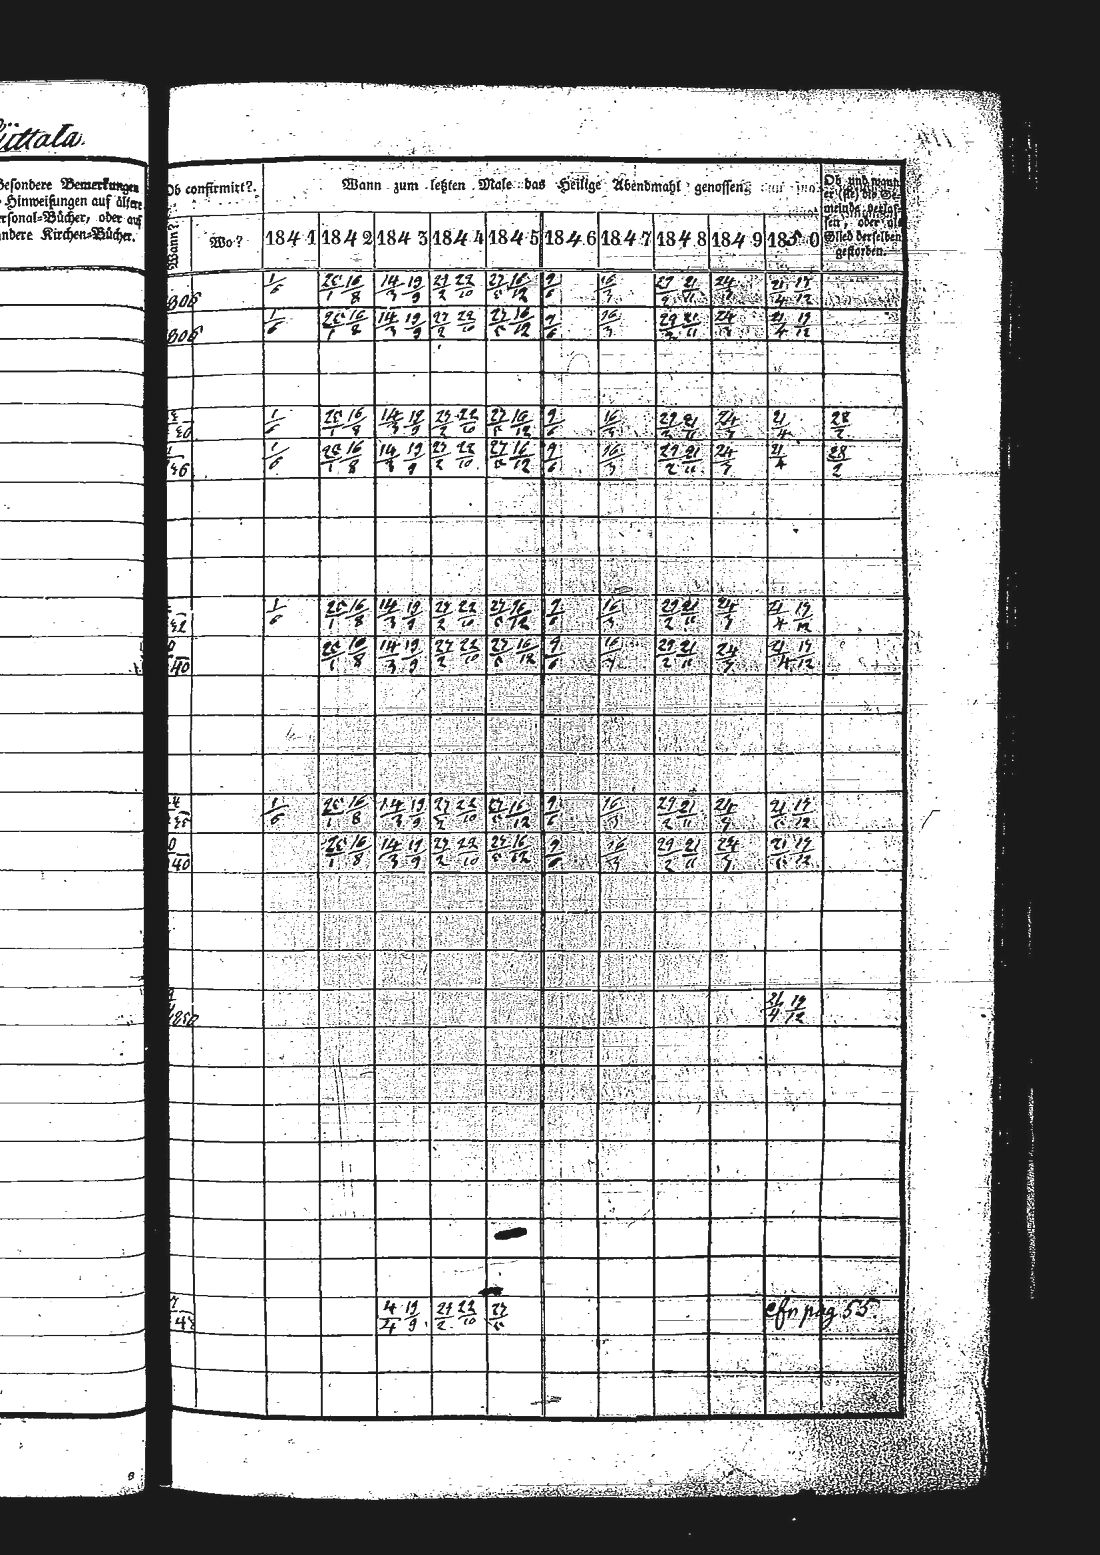 üttala.
Besondere Bemerkungen
Hinweisungen auf ältere
Personal=Bücher, oder auf
andere Kirchen=Bücher.
Ob confirmirt?
Wann?
Wo?
Wann zum letzten Male das Heilige Abendmahl genossen
Ob und wann
er (sie) die Ge-
meinde verlas-
sen, oder als
Glied derselben
gestorben.
1841 1842 1843 1844 1845 1846 1847 1848 1849 1850
806 1/6 25/1 16/8 14/3 19/9 27/2 22/10 27/5 16/12 9/6 16/3 29/2 21/11 24/3 21/4 19/12
806 1/6 25/1 16/8 14/3 19/9 27/2 22/10 27/5 16/12 9/6 16/3 29/2 21/11 24/3 21/4 19/12
1/6 25/1 16/8 14/3 19/9 27/2 22/10 27/5 16/12 9/6 16/3 29/2 21/11 24/3 21/4 28/2
1/6 25/1 16/8 14/3 19/9 27/2 22/10 27/5 16/12 9/6 16/3 29/2 21/11 24/3 21/4 28/2
1/6 25/1 16/8 14/3 19/9 27/2 22/10 27/5 16/12 9/6 16/3 29/2 21/11 24/3 21/4 19/12
40 25/1 16/8 14/3 19/9 27/2 22/10 27/5 16/12 9/6 16/3 29/2 21/11 24/3 21/4 19/12
1/6 25/1 16/8 14/3 19/9 27/2 22/10 27/5 16/12 9/6 16/3 29/2 21/11 24/3 21/5 19/12
40 25/1 16/8 14/3 19/9 27/2 22/10 27/5 16/12 9/6 16/3 29/2 21/11 24/3 21/5 19/12
1850 21/4 19/12
4/4 19/9 27/2 22/10 27/5 cfr pag 55.